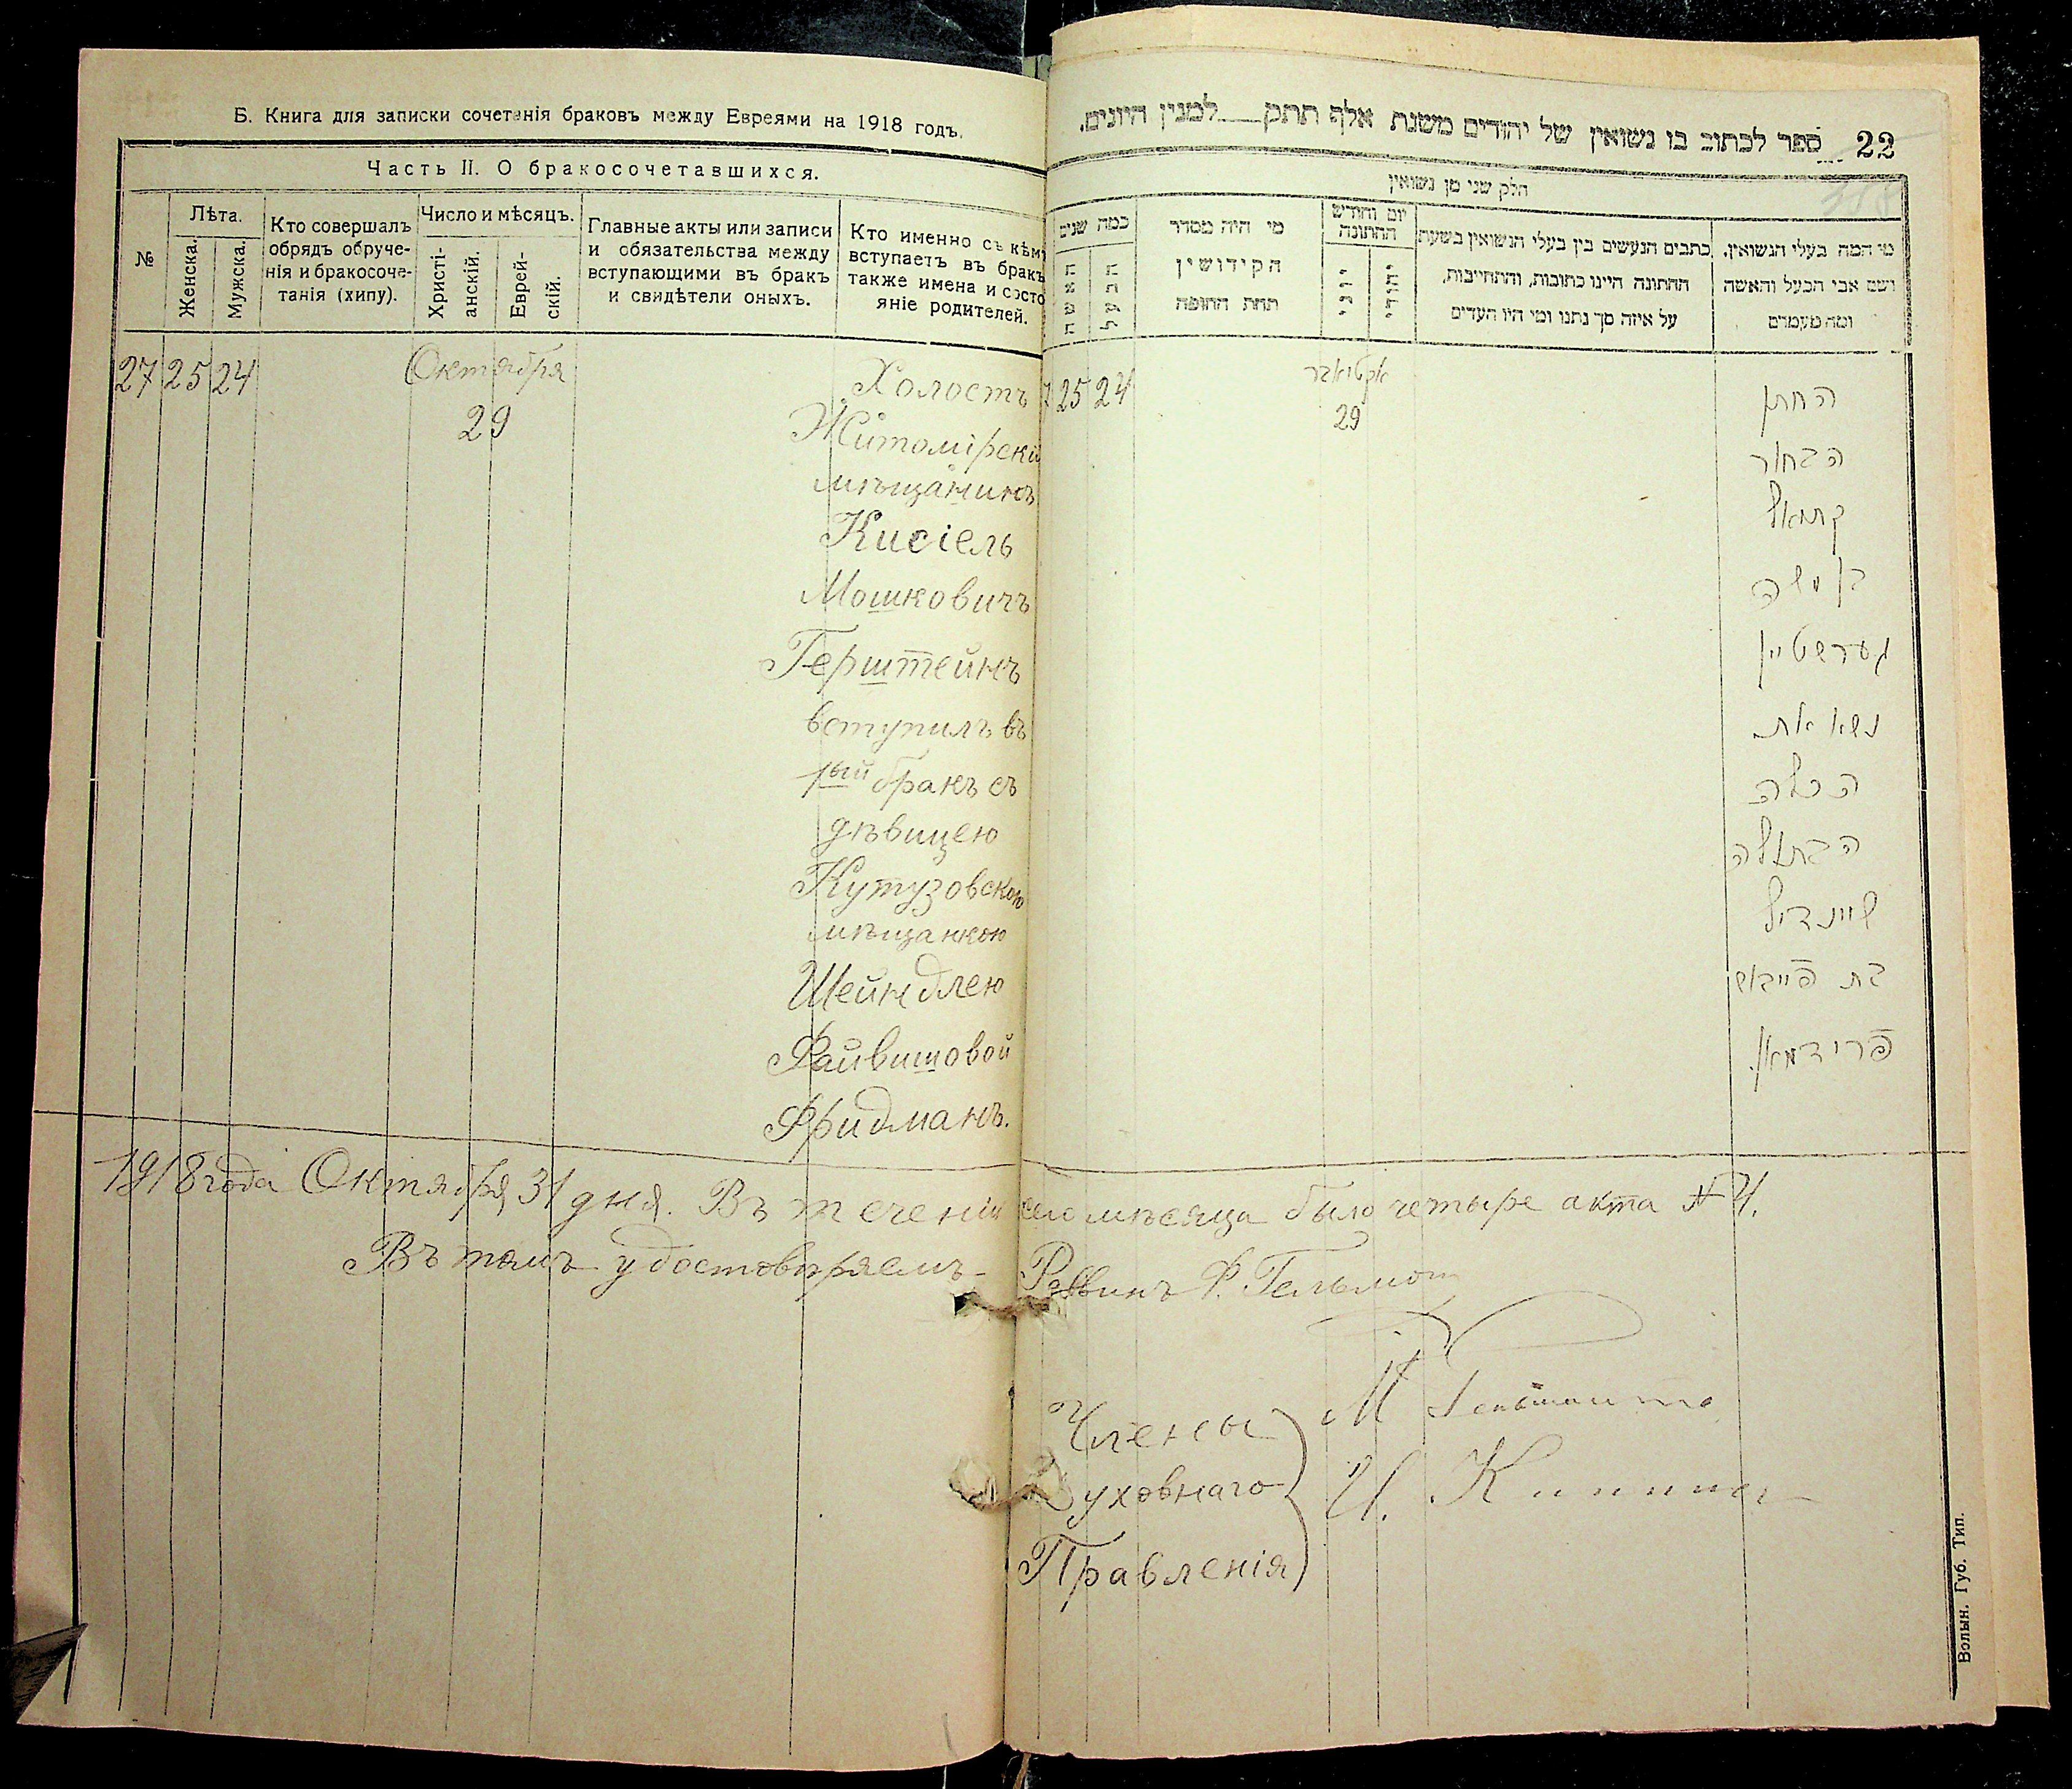 Б. Книга для записки сочетанія браковъ между Евреями на 1918 годъ.
Часть II. О бракосочетавшихся.
№
Лѣта.
Женска.
Мужска.
Кто совершалъ
обрядъ обруче-
нія и бракосоче-
танія (хипу).
Число и мѣсяцъ.
Христі-
анскій.
Еврей-
скій.
Главные акты или записи
и обязательства между
вступающими въ бракъ
и свидѣтели оныхъ.
Кто именно съ кѣмъ
вступаетъ въ бракъ
также имена и состо
яніе родителей.
27 25 24
Октября
29
Холостъ
Житомірскій
мѣщанинъ
Кисіель
Мошковичъ
Герштейнъ
вступилъ въ
1ый бракъ съ
дѣвицею
Кутузовскою
мѣщанкою
Шейндлею
Файвишовой
Фридманъ.
22
ספר לכתוב בו נשואין של יהודים משנת אלף תתק___למנין היונים.
חלק שני מן נשואין
כמה שנים
האשה
הבעל
מי היה מסדר
הקידושין
תחת החופה
יום וחודש
החתונה
יוני
יהודי
כתבים הנעשים בין בעלי הנשואין בשעת
החתונה היינו כתובות, והתחייבות,
על איזה סך נתנו ומי היו העדים
מי המה בעלי הנשואין,
ושם אבי הבעל והאשה
ומה מעמדם
25 24
אקטיאבר
29
החתן
הבחור
בן משה
גערשטיין
נשא את
הכלה
הבתולה
שיינדיל
בת פייבוש
פרידמאן.
1918 года Октября 31 дня. Въ теченіи сего мѣсяца было четыре акта № 4.
Въ томъ удостовѣряемъ - Раввинъ Ф. Гельман
Члены
Духовнаго
Правленія
М
И. К
Волын. Губ. Тип.